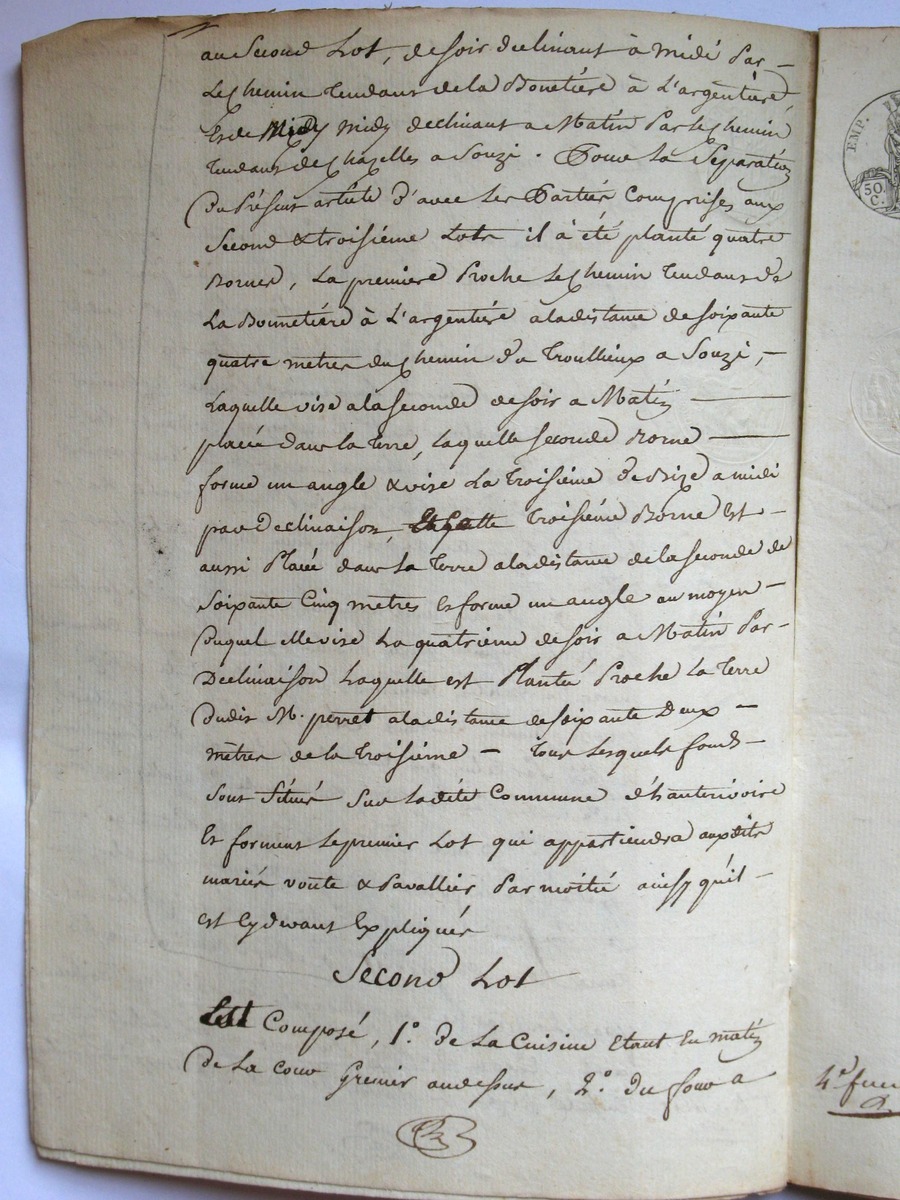 au Second Lot, de soir declinant à midi Par
Le Chemin tendant de la Bonetiere à L'argentiere,
Et de Midy midy declinant a Matin Par le Chemin
tendant de Chazelles a Souzi. Pour la Separation
du Présent article d'avec les Parties Comprises aux
Second & troisième Lots il à été planté quatre
Bornes, La premiere Proche le Chemin tendant de
La Bonnetiére à L'argentiére a la distance de soixante
quatre metres du Chemin de Troullieux a Souzi,
Laquelle vise a la seconde de soir a Matin
placée dans la terre, Laquelle seconde Borne
forme un angle & vise La troisiéme de Bize a midi
par Declinaison, Laquelle troisiéme Borne Est
aussi Placée dans La terre a la distance de la seconde de
Soixante Cinq metres Et forme un angle au moyen
Duquel elle vise La quatrieme de soir a Matin Par
Declinaison Laquelle est Planté Proche La terre
dudit M. perret a la distance de soixante Deux
metres de la troisiéme — tous Lesquels fonds
sont situés sur ladite Commune d'hauterivoire
Et forment Le premier Lot qui appartiendra auxdits
mariés voute & Pavallier Par moitié ainsy qu'il
est Cydevant Expliqués
Second Lot
Est Composé, 1.º de La Cuisine Etant En matin
de La Cour Grenier au dessus, 2.º Du four a
EMP.
50.
C.